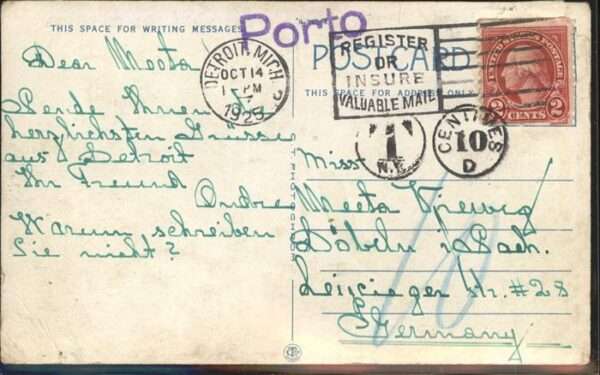 THIS SPACE FOR WRITING MESSAGES
Porto
POSTCARD
THIS SPACE FOR ADDRESS ONLY
DETROIT, MICH.
OCT 14
PM
1923
REGISTER
OR
INSURE
VALUABLE MAIL
UNITED STATES POSTAGE
2 CENTS 2
T
N.Y.
CENTIMES
10
D
Dear Meeta
Sende Ihnen
herzlichsten Grüsse
aus Detroit
Ihr Freund
Andre
Warum schreiben
Sie nicht?
Miss
Meeta
Döbeln i/Sach.
Leipziger Str. #28
Germany
10